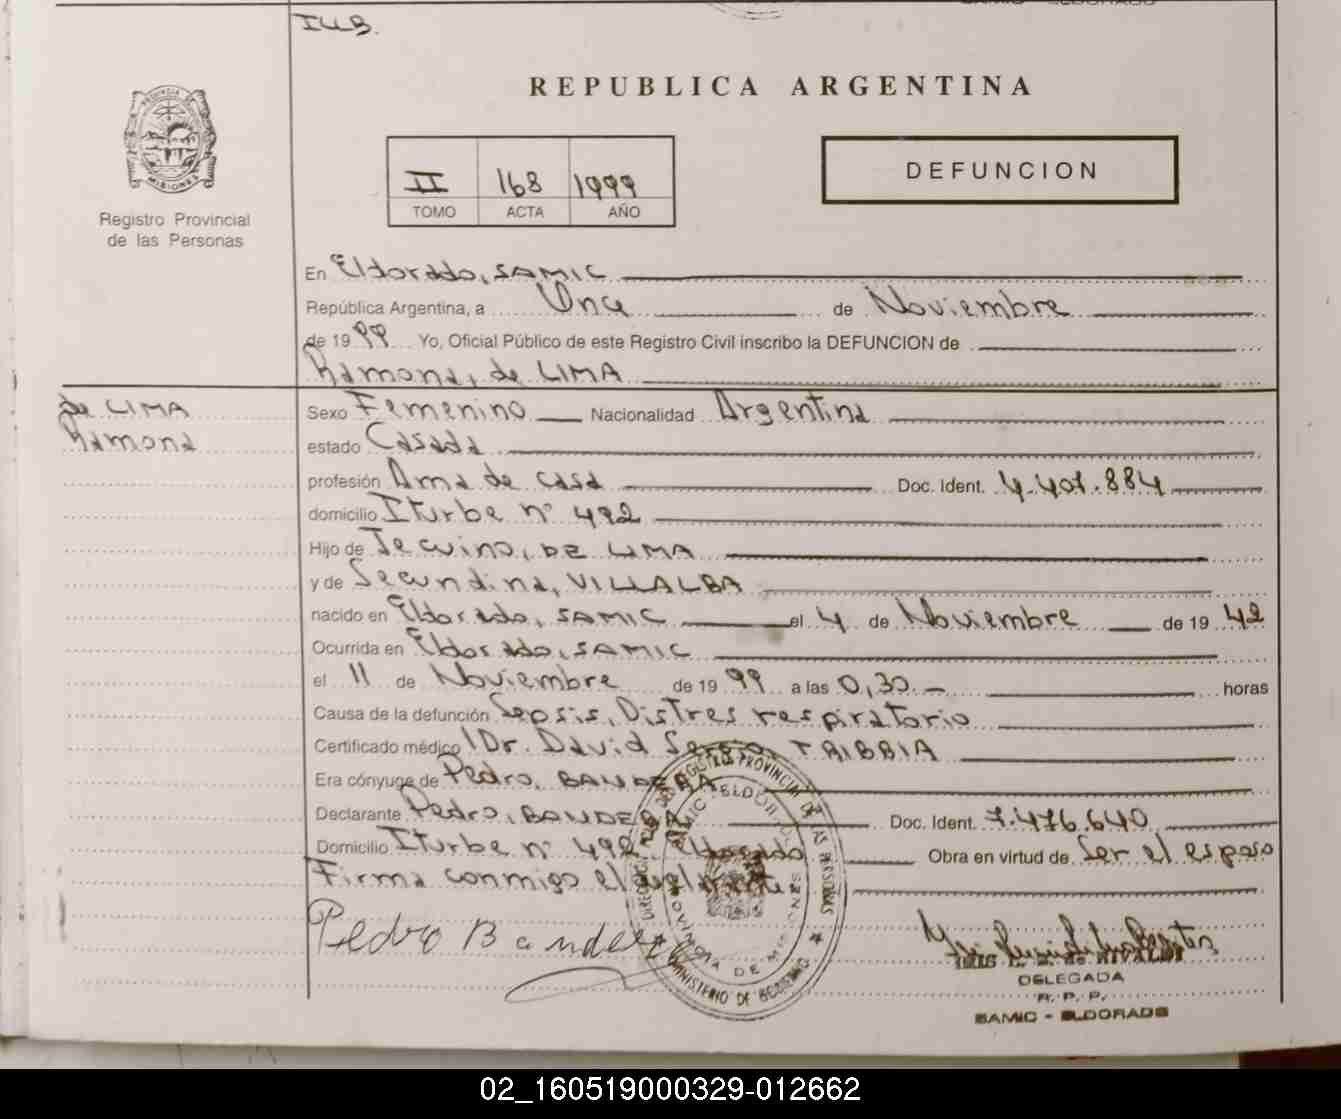 IUB.
REPUBLICA ARGENTINA
PROVINCIA DE MISIONES
II 168 1999
TOMO ACTA AÑO
DEFUNCION
Registro Provincial
de las Personas
En Eldorado, SAMIC
República Argentina, a Once de Noviembre
de 1999 Yo, Oficial Público de este Registro Civil inscribo la DEFUNCION de
Ramona, de LIMA
de LIMA
Ramona
Sexo Femenino Nacionalidad Argentina
estado Casada
profesión Ama de casa Doc. Ident. 4.401.884
domicilio Iturbe nº 492
Hijo de Jecuino, DE LIMA
y de Secundina, VILLALBA
nacido en Eldorado, SAMIC el 4 de Noviembre de 19 42
Ocurrida en Eldorado, SAMIC
el 11 de Noviembre de 19 99 a las 0,30.- horas
Causa de la defunción Sepsis, Distres respiratorio
Certificado médico Dr. David Sergio, TRIBBIA
Era cónyuge de Pedro, BANDERA
Declarante Pedro, BANDERA Doc. Ident. 7.476.640
Domicilio Iturbe nº 492 Eldorado Obra en virtud de Ser el esposo
Firma conmigo el declarante
Pedro Bandera
DELEGADA
R. P. P.
SAMIC - ELDORADO
DIRECCION DEL REGISTRO PROVINCIAL DE LAS PERSONAS
MINISTERIO DE GOBIERNO
SAMIC ELDORADO
PROVINCIA DE MISIONES
02_160519000329-012662